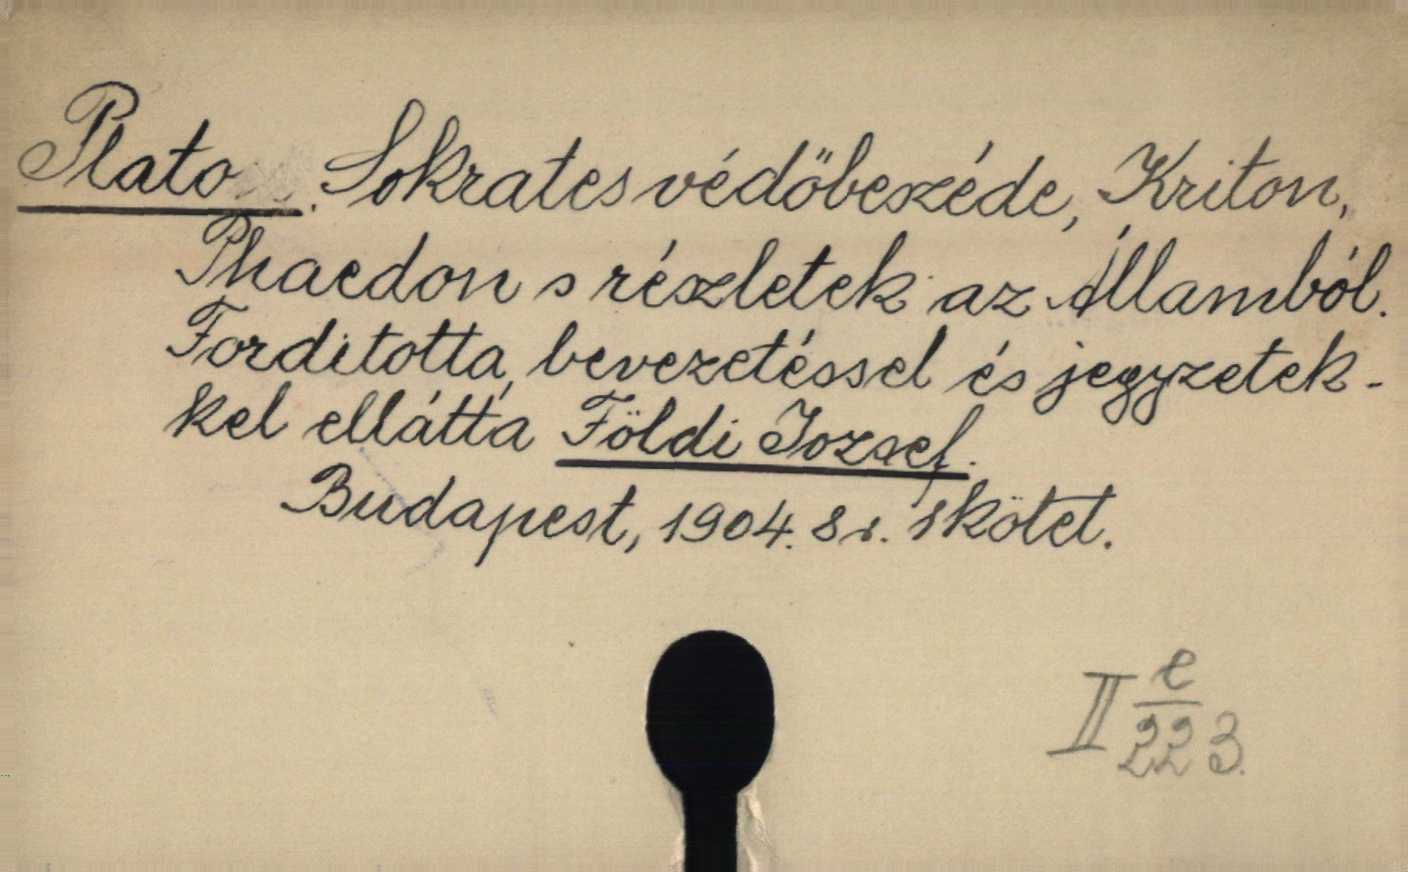 Plato. Sokrates védőbeszéde, Kriton,
Phaedon s részletek az Államból.
Forditotta, bevezetéssel és jegyzetek-
kel ellátta Földi Jozsef.
Budapest, 1904. 8r. 1 kötet.
II e/223.